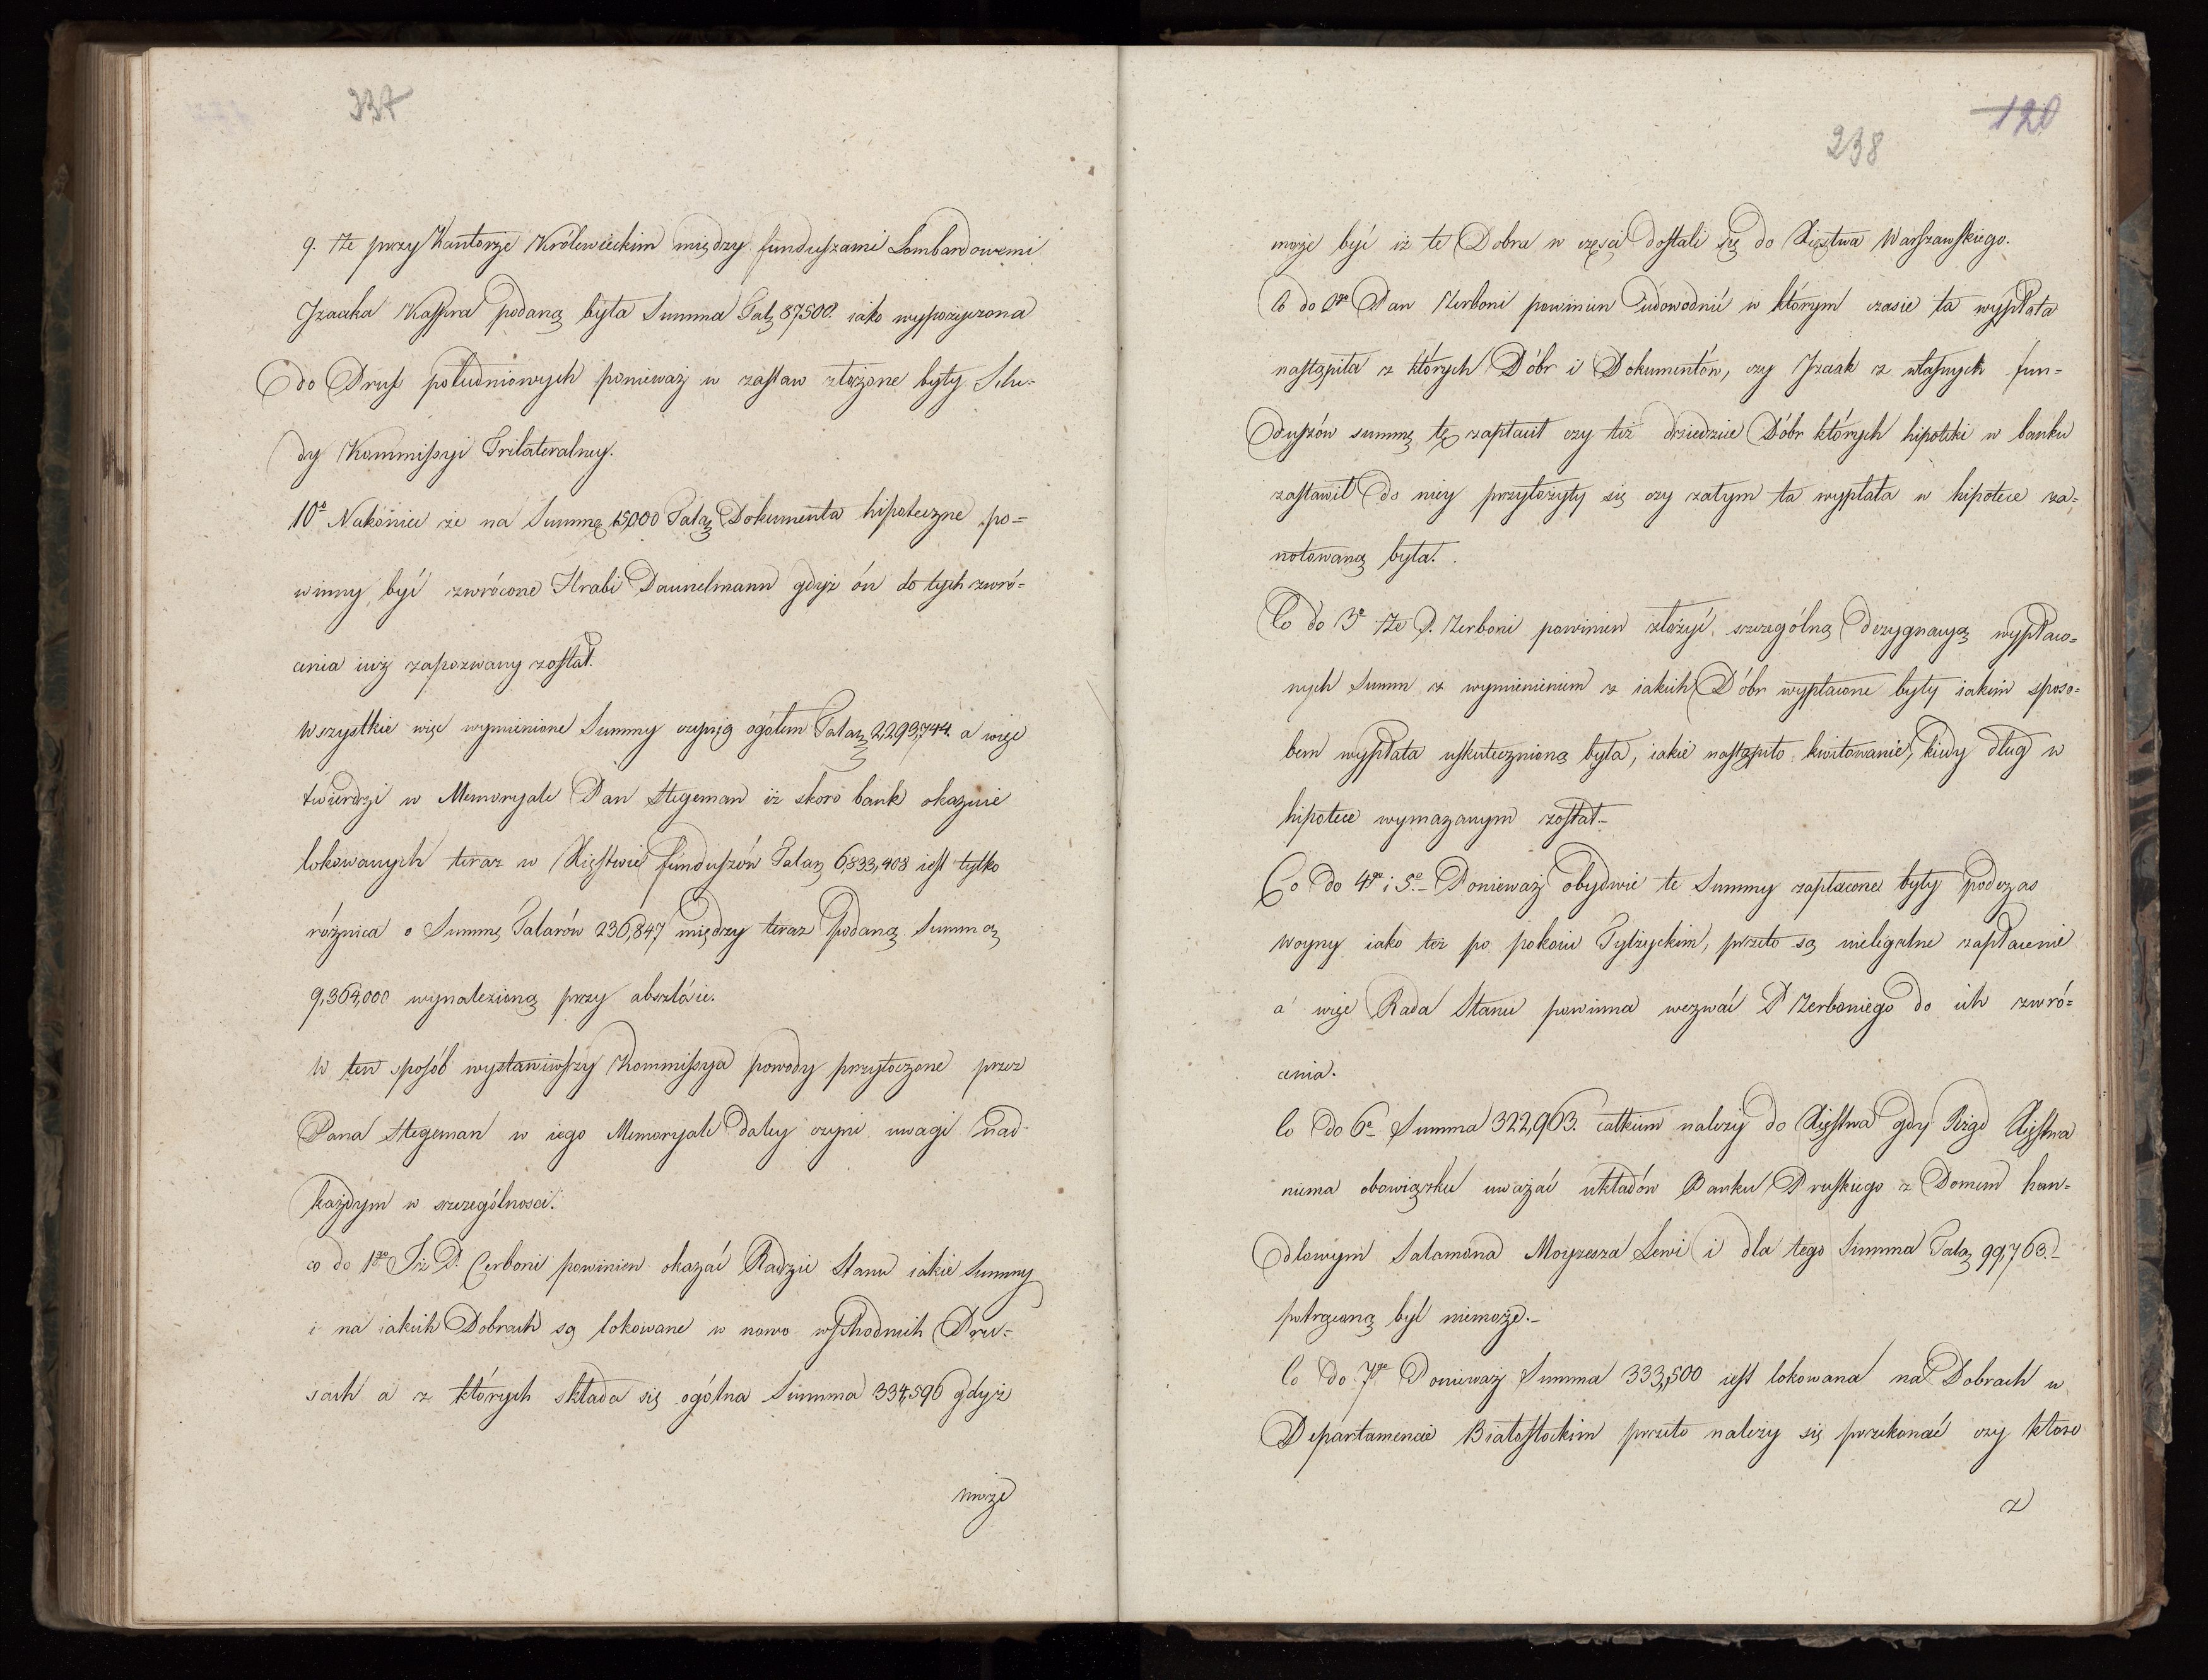 237
9. Że przy Kantorze Królewieckim między funduszami Lombardowemi
Jzaaka Kaspra podaną była Summa Tal. 87500. iako wypożyczona
do Prus południowych ponieważ w zastaw złożone były Schu-
dy Kommissyi Trilateralney.
10e Nakoniec że na Summę 15,000 Talar. Dokumenta hipoteczne po=
winny być zwrócone Hrabi Daunelmann gdyż ón do tych zwró=
cenia iuż zapozwany został.
Wszystkie więc wymienione Summy czynią ogółem Talar. 2,293,744. a więc
twierdzi w Memoryale Pan Stegeman iż skoro bank okazuie
lokowanych teraz w Xięstwie funduszów Talar. 6,833,408 iest tylko
różnica o Summę Talarów 236,847 między teraz podaną Summą
9,364,000 wynalezioną przy abszlósie.
W ten sposób wystawiwszy Kommissya powody przytoczone przez
Pana Stegeman w iego Memoryale daley czyni uwagi nad
każdym w szczególnosci.
co do 1go Iż P. Cerboni powinien okazać Radzie Stanu iakie Summy
i na iakich Dobrach są lokowane w nowo wschodnich Pru=
sach a z których składa się ogólna Summa 334,596 gdyż
może
120
238
może być iż te Dobra w części dostali się do Xięstwa Warszawskiego.
Co do 2go Pan Zerboni powinien udowodnić w którym czasie ta wypłata
nastąpiła z których Dóbr i Dokumentów, czy Jzaak z własnych fun=
duszów summę tę zapłacił czy też dziedzice Dóbr których hipoteki w banku
zastawił do niey przyłożyły się czy zatym ta wypłata w hipotece za=
notowaną była.
Co do 3o Że P. Zerboni powinien złożyć szczególną dezygnacyą wypłaco=
nych Summ z wymienieniem z iakich Dóbr wypłacone były iakim sposo=
bem wypłata uskutecznioną była, iakie nastąpiło kwitowanie, kiedy dług w
hipotece wymazanym został.-
Co do 4go i 5o - Ponieważ obydwie te Summy zapłacone były podczas
woyny iako też po pokoiu Tylżyckim, przeto są nielegalne zapłacenie
a więc Rada Stanu powinna wezwać P Zerboniego do ich zwró=
cenia.
Co do 6o Summa 322,963. całkiem należy do Xięstwa gdy Rząd Xięstwa
niema obowiązku uważać układów Banku Pruskiego z Domem han=
dlowym Salamona Moyzesza Lewi i dla tego Summa Talar. 99,763.-
potrąconą być niemoże.-
Co do 7go Ponieważ Summa 333,500 iest lokowana na Dobrach w
Departamencie Białostockim przeto należy się przekonać czy które
z